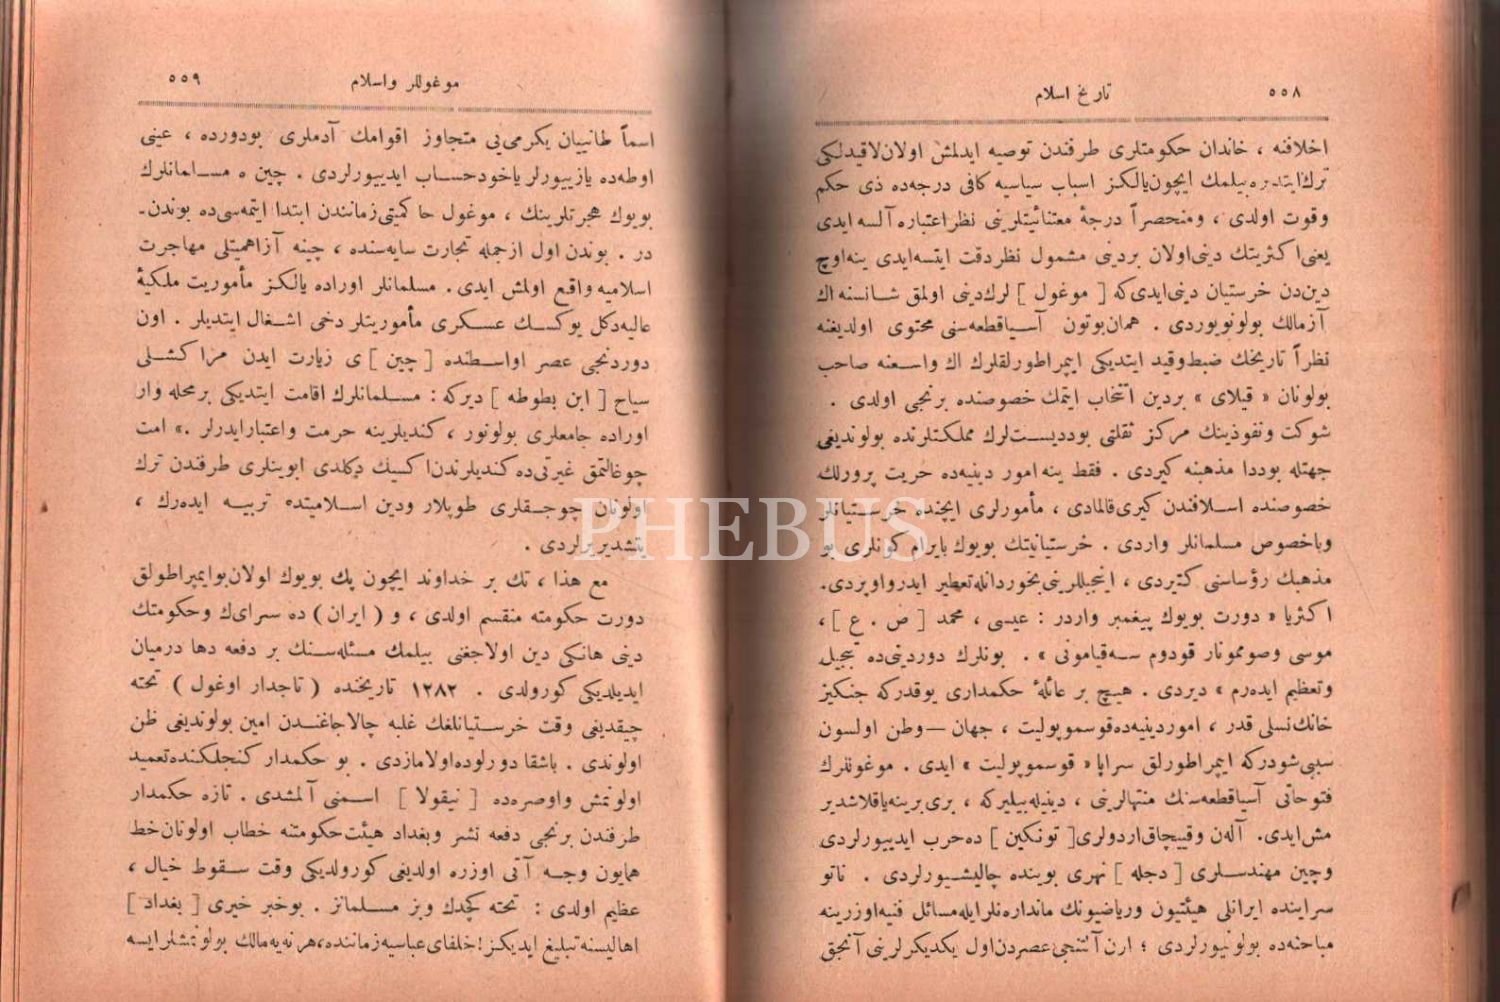 ٥٥٨ تاريخ اسلام
اخلافنه ، خاندان حكومتلرى طرفندن توصيه ايدلمش اولان لاقيدلكى
ترك ايتديره بيلمك ايچون يالكز اسباب سياسيه كافى درجه ده ذى حكم
وقوت اولدى ، ومنحصراً درجۀ معتنائيتلرينى نظر اعتباره آلسه ايدى
يعنى اكثريتك دينى اولان بردينى مشمول نظردقت ايتسه ايدى ينه اوچ
دين دن خرستيان دينى ايدى كه [ موغول ] لرك دينى اولمق شانسنه اك
آز مالك بولونويوردى . همان بوتون آسيا قطعه سنى محتوى اولديغنه
نظراً تاريخك ضبط وقيد ايتديكى ايمپراطورلقلرك اك واسعنه صاحب
بولونان « قيلاى » بردين انتخاب ايتمك خصوصنده برنجى اولدى .
شوكت ونفوذينك مركز ثقلتى بوديستلرك مملكتلرنده بولونديغى
جهتله بوددا مذهبنه كيردى . فقط ينه امور دينيه ده حريت پرورلك
خصوصنده اسلافندن كيرى قالمادى ، مأمورلرى ايچنده خرستيانلر
وباخصوص مسلمانلر واردى . خرستيانيتك بويوك بايرام كونلرى بو
مذهبك رؤساسنى كتيردى ، انجيللرينى بخوردانله تعطير ايدر واوپردى.
اكثريا « دورت بويوك پيغمبر واردر : عيسى ، محمد [ ص . ع ] ،
موسى وصومونار قودوم سه قيامونى » . بونلرك دوردينى ده تبجيل
وتعظيم ايده رم » ديردى . هيچ بر عائلۀ حكمدارى يوقدركه جنكيز
خانك نسلى قدر ، امور دينيه ده قوسموپوليت ، جهان — وطن اولسون
سببى شودركه ايمپراطورلق سراپا « قوسموپوليت » ايدى . موغوللرك
فتوحاتى آسيا قطعه سنك منتهالرينى ، دينيله بيليركه ، برى برينه ياقلاشدير
مش ايدى. آلەن وقيپچاق اردولرى [ تونكين ] ده حرب ايدييورلردى
وچين مهندسلرى [ دجله ] نهرى بوينده چاليشيورلردى . ناتو
سراينده ايرانلى هيئتيون ورياضيونك ماندارەنلر ايله مسائل فنيه اوزرينه
مباحثه ده بولونيورلردى ؛ ارن آلتنجى عصردن اول يكديكرلرينى آنجق
موغوللر واسلام ٥٥٩
اسماً طانييان يكرمى يى متجاوز اقوامك آدملرى بودورده ، عينى
اوطه ده يازييورلر ياخود حساب ايدييورلردى . چين ه مسلمانلرك
بويوك هجرتلرينك ، موغول حاكميتى زمانندن ابتدا ايتمه سى ده بوندن-
در . بوندن اول ازجمله تجارت سايه سنده ، چينه آز اهميتلى مهاجرت
اسلاميه واقع اولمش ايدى . مسلمانلر اوراده يالكز مأموريت ملكيۀ
عاليه دكل يوكسك عسكرى مأموريتلر دخى اشغال ايتديلر . اون
دوردنجى عصر اواسطنده [ چين ] ى زيارت ايدن مراكشلى
سياح [ ابن بطوطه ] ديركه : مسلمانلرك اقامت ايتديكى بر محله وار
اوراده جامعلرى بولونور ، كنديلرينه حرمت واعتبار ايدرلر .» امت
چوغالتمق غيرتى ده كنديلرندن اكسيك دكلدى ابوينلرى طرفندن ترك
اولونان چوجقلرى طوپلار ودين اسلاميتده تربيه ايده رك ،
يتشديريرلردى .
مع هذا ، تك بر خداوند ايچون پك بويوك اولان بو ايمپراطولق
دورت حكومته منقسم اولدى ، و ( ايران ) ده سراى ك وحكومتك
دينى هانكى دين اولاجغنى بيلمك مسئله سنك بر دفعه دها درميان
ايديلديكى كورولدى . ١٢٨٢ تاريخنده ( تاجدار اوغول ) تخته
چيقديغى وقت خرستيانلغك غلبه چالاجاغندن امين بولونديغى ظن
اولوندى . باشقا دورلوده اولامازدى . بو حكمدار كنجلكنده تعميد
اولونمش واوصره ده [ نيقولا ] اسمنى آلمشدى . تازه حكمدار
طرفندن برنجى دفعه نشر وبغداد هيئت حكومتنه خطاب اولونان خط
همايون وجه آتى اوزره اولديغى كورولديكى وقت سقوط خيال ،
عظيم اولدى : تخته كچدك وبز مسلمانز . بو خبر خيرى [ بغداد ]
اهاليسنه تبليغ ايديكز! خلفاى عباسيه زماننده، هر نه يه مالك بولونمشلر ايسه
PHEBUS